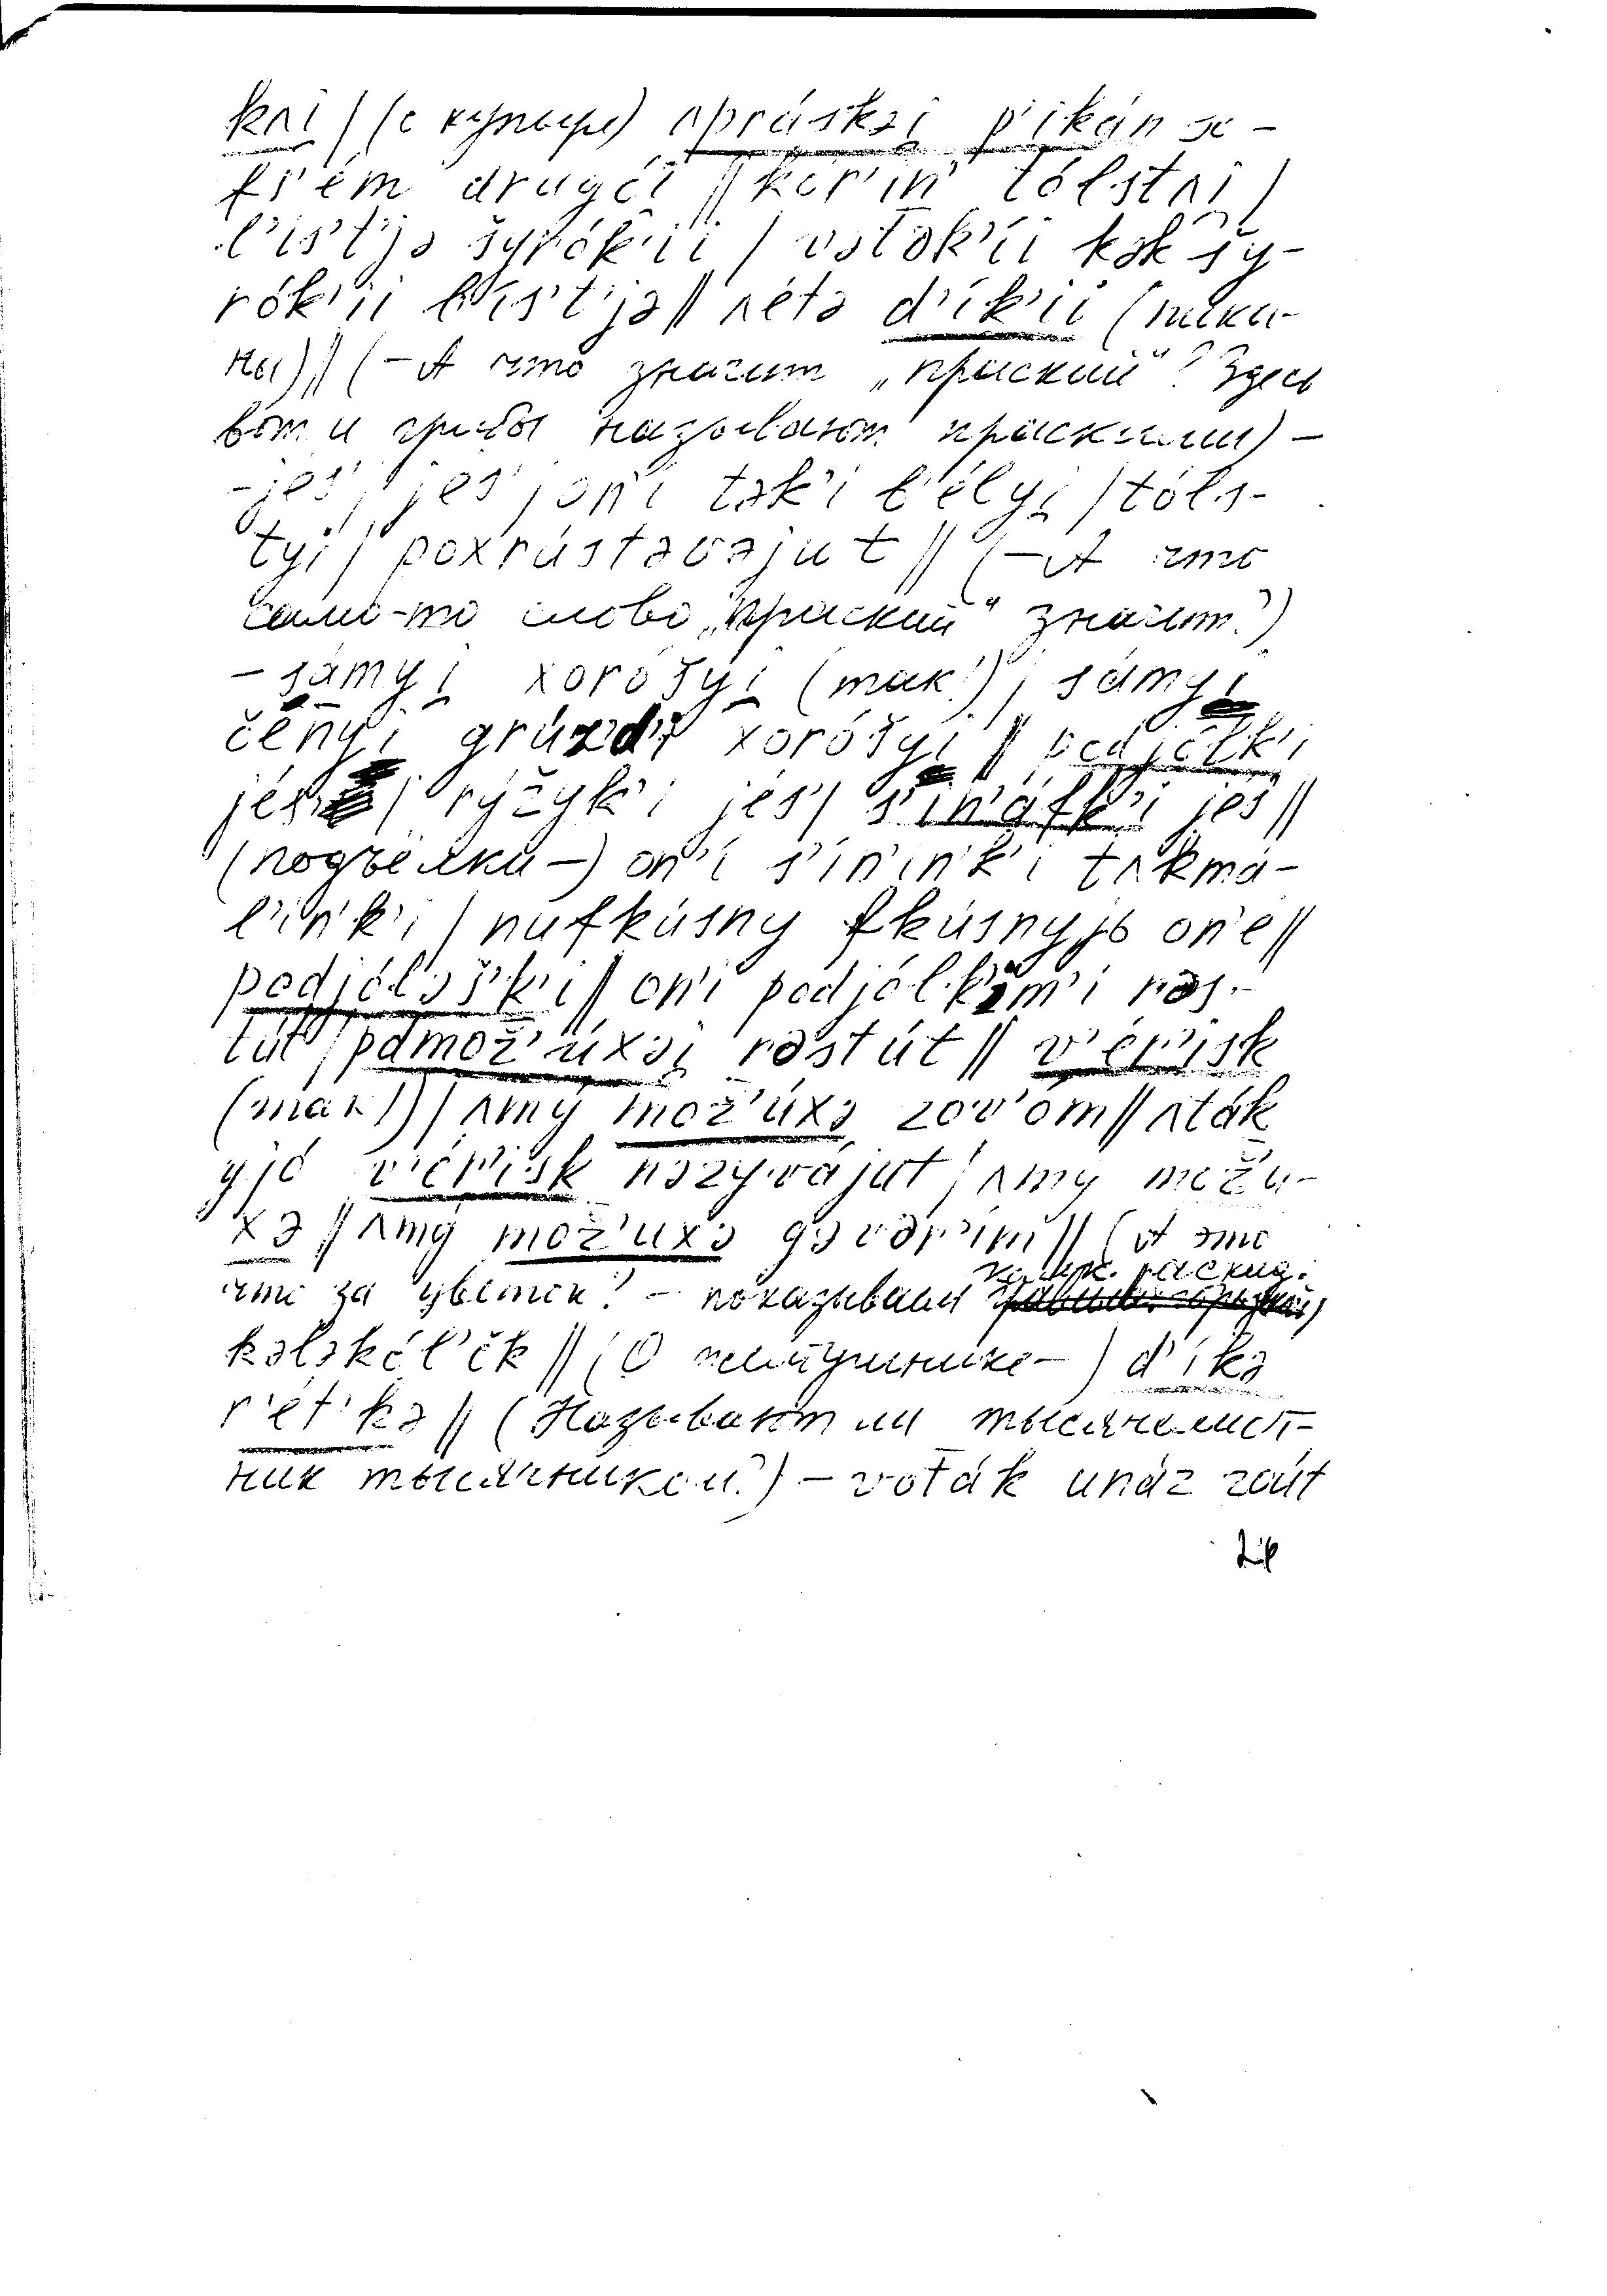 kʌi / (о купыре) ʌpráskəi̯ p'ikán so-
fs'ém drugói // kór'in' tólstʌi /
l'ís't'jə šyrók'ii / vot̄ək'íi kək šy-
rók'ii l'ís't'jə // ʌétə d'ík'ii (пика-
ны) // (– А что значит „праский“? Здесь
вот и грибы называют праскими) –
- jes', jes' / on'í tak'í b'élyi̯ / tóls-
tyi / poxrústəvəjut // (– А что
само-то слово „праский“ значит?)
– sámyi̯ xoróšyi̯ (так!), sámyi̯
čёnyi̯ grúz'd'i xoróšyi̯ // podjólk'i
jés' / rýžyk'i jés' / s'in'áfk'i jes' //
(подъёлки –) on'í s'ín'in'k'i tʌkmá-
l'in'k'i / nufkúsny fkúsnyjə on'é //
podjóləšk'i // on'í podjólkəm'i rəs-
tút / pdmož'úxəi̯ rəstút // v'ér'isk
(так!) / ʌmý mož'úxə zov'óm // ʌták
yjó v'ér'isk nəzyvájut / ʌmy možú-
xə // ʌmý mož'úxə gəvər'ím // (А это
что за цветок? – показываем колок. раскид.)
kəlakól'čk // (О жабушнике –) d'íkə
r'ét'kə // (Называют ли тысячелист-
ник тысячником?) – vot̄ák unáz zoút